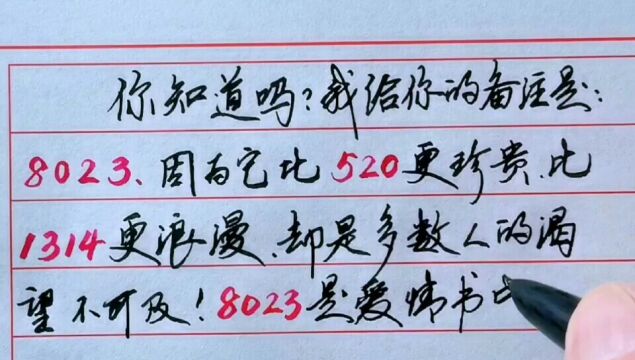 你知道吗?我给你的备注是:
8023、因为它比520更珍贵、比
1314更浪漫、却是多数人的渴
望不可及!8023是爱情书